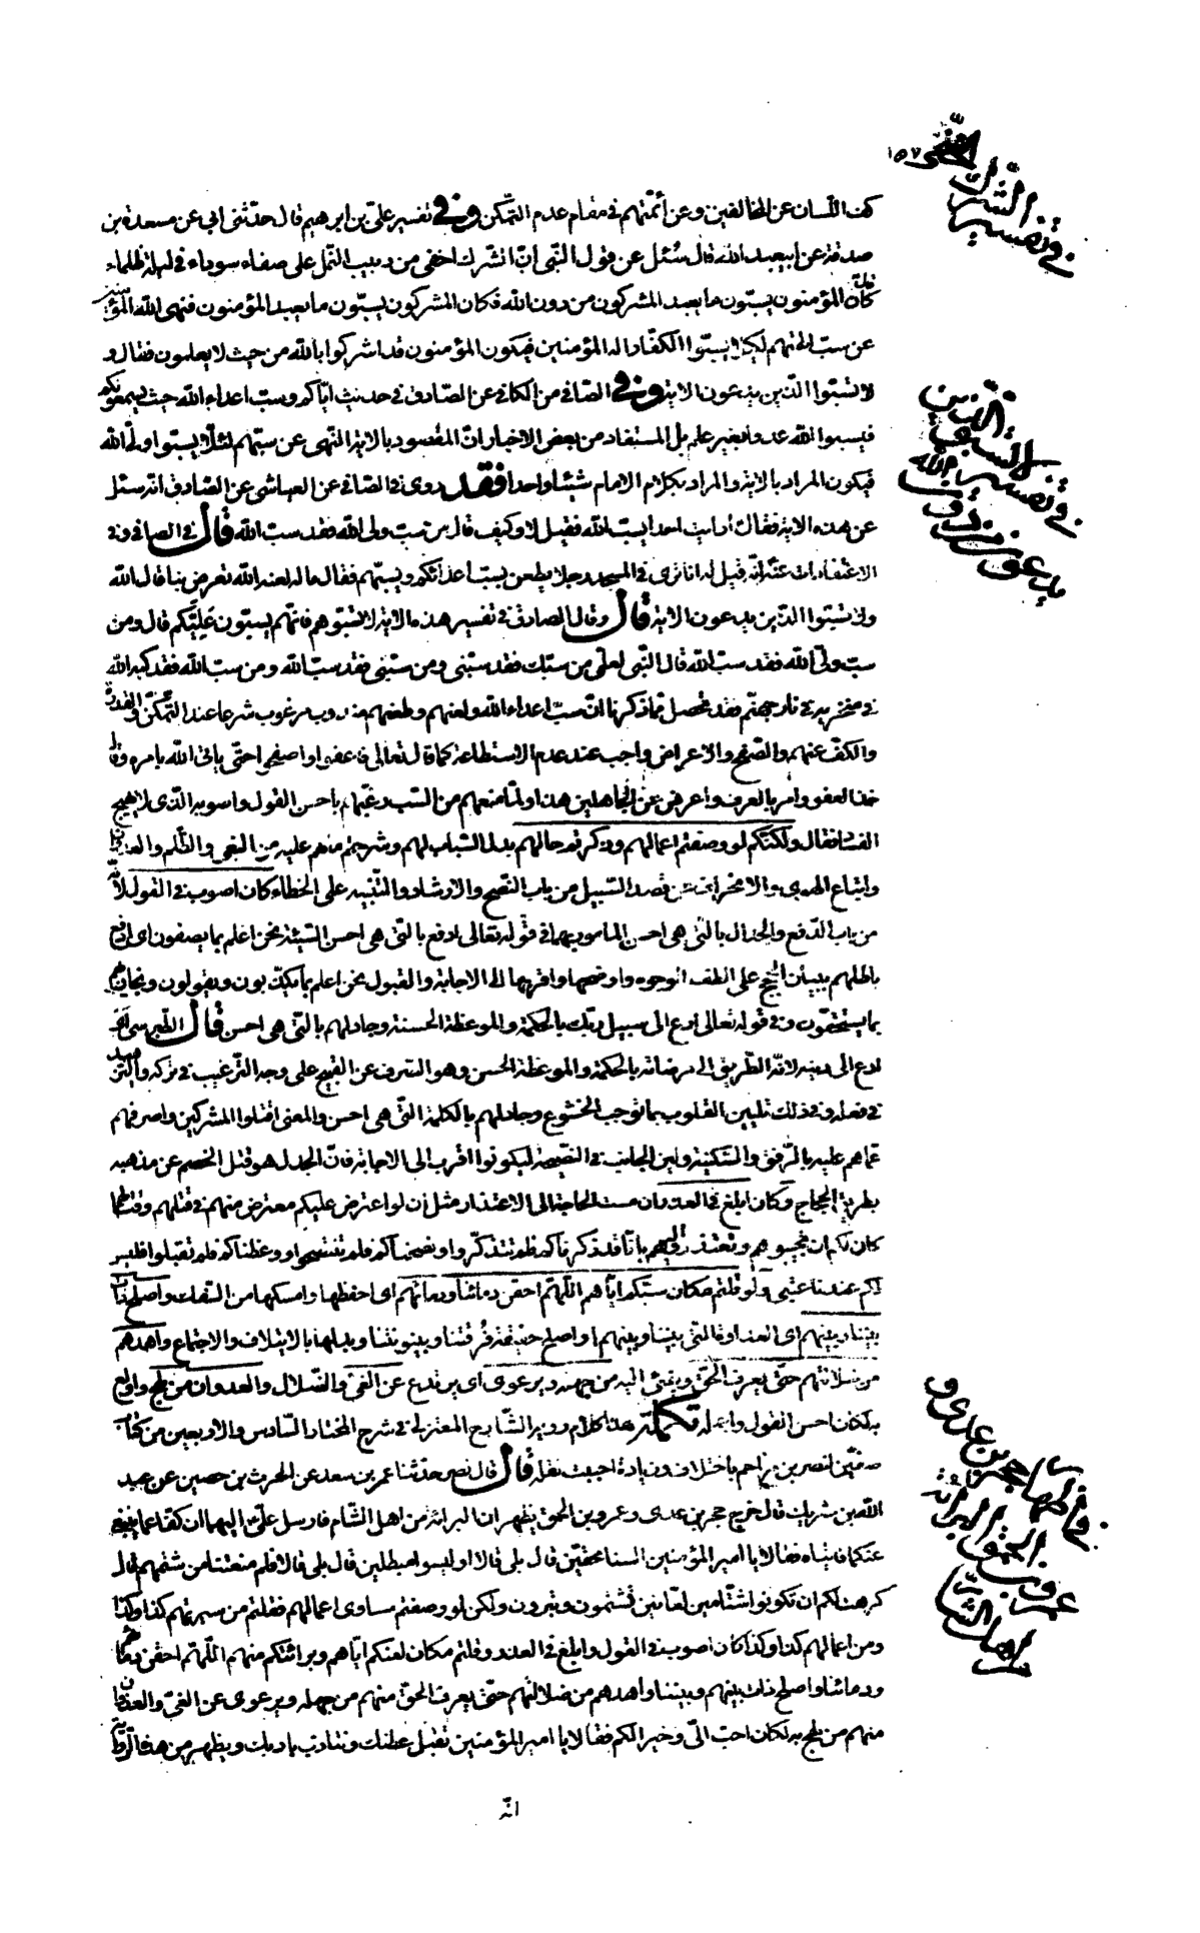 في تفسير الشرك الخفي ١٥٧
كف اللسان عن المخالفين وعن أئمتهم في مقام عدم التمكن وفي تفسير علي بن ابرهيم قال حدثني ابي عن مسعدة بن
صدقة عن ابيعبد الله قال سُئل عن قول النبي انّ الشرك اخفى من دبيب النمل على صفاء سوداء في ليلة ظلماء
قال كان المؤمنون يسبّون ما يعبد المشركون من دون الله فكان المشركون يسبّون ما يعبد المؤمنون فنهى الله المؤمنين
عن سبّ الهتهم لكيلا يسبّوا الكفّار اله المؤمنين فيكون المؤمنون قد اشركوا بالله من حيث لا يعلمون فقال و
لا تسبّوا الّذين يدعون الاية وفي الصافي من الكافي عن الصّادق في حديث ايّاكم وسبّ اعداء الله حيث يسمعونكم
فيسبوا الله عدوا بغير علم بل المستفاد من بعض الاخبار ان المقصود بالاية النهى عن سبّهم لئلّا يسبّوا وليّ الله
في تفسير ولا تسبوا الذين يدعون من دون الله
فيكون المراد بالاية والمراد بكلام الامام شيئا واحدا فقد روى في الصّافي عن العياشي عن الصّادق انّه سئل
عن هذه الاية فقال أرايت احدا يسبّ الله فقيل لا وكيف قال من سبّ ولى الله فقد سبّ الله قال في الصافي وفي
الاعتقادات عنه انّه قيل له انا نرى في المسجد رجلا يعلن بسبّ اعدائكم ويسبّهم فقال ماله لعنه الله تعرض بنا قال الله
ولا تسبّوا الذين يدعون الاية قال وقال الصادق في تفسير هذه الاية لا تسبّوهم فانّهم يسبّون عليّكم قال ومن
سبّ وليّ الله فقد سبّ الله قال النّبي لعلي من سبّك فقد سبّني ومن سبّني فقد سبّ الله ومن سبّ الله فقد كبّه الله
في منخريه في نار جهنّم فقد تحصل ممّا ذكرنا انّ سبّ اعداء الله ولعنهم وطعنهم مندوب مرغوب شرعا عند التّمكّن والقدرة
والكفّ عنهم والصّفح والاعراض واجب عند عدم الاستطاعة كما قال تعالى فاعفوا واصفحوا حتّى ياتي الله بامره وقال
خذ العفو وأمر بالعرف واعرض عن الجاهلين هذا ولمّا منعهم من السّبّ رغّبهم باحسن القول واصوبه الّذي لا يهيج
الفساد فقال ولكنّكم لو وصفتم اعمالهم وذكرتم حالهم بدل السّباب لهم وشرحتم ما هم عليه من البغي والظّلم والعدوان
واتباع الهوى والانحراف عن قصد السّبيل من باب النّصح والارشاد والتّنبيه على الخطاء كان اصوب في القول لأنّه
من باب الدّفع والجدال بالّتي هي احسن المأمور بهما في قوله تعالى ادفع بالّتي هي احسن السّيّئة نحن اعلم بما يصفون اى ادفع
باطلهم ببيان الحجج على الطف الوجوه واوضحها واقربها الى الاجابة والقبول نحن اعلم بما يكذبون ويقولون ونجازيهم
بما يستحقّون وفي قوله تعالى ادع الى سبيل ربّك بالحكمة والموعظة الحسنة وجادلهم بالّتي هي احسن قال الطّبرسي اى
ادع الى دينه لانّه الطّريق الى مرضاته بالحكمة والموعظة الحسن وهو الصّرف عن القبيح على وجه التّرغيب في تركه والتّزهيد
في فعله وفي ذلك تليين القلوب بما يوجب الخشوع وجادلهم بالكلمة الّتي هي احسن والمعنى افتلوا المشركين واصرفهم
عمّا هم عليه بالرّفق والسّكينة ولين الجانب في النّصيحة ليكونوا اقرب الى الاجابة فانّ الجدل هو فتل الخصم عن مذهبه
بطريق الحجاج وكان ابلغ في العذر ان مست الحاجة الى الاعتذار مثل ان لو اعترض عليكم معترض منهم في قتلهم وقتالهم
كان لكم ان تجيبوهم وتعتذروا اليهم بانّا قد ذكرناكم فلم تتذكّروا ونصحناكم فلم تنتصحوا ووعظناكم فلم تقبلوا فليس
لكم عندنا عتبى ولو قلتم مكان سبّكم ايّاهم اللّهمّ احقن دمائنا ودمائهم اى احفظها وامسكها من السّفك واصلح ذات
بيننا وبينهم اى العداوة الّتي بيننا وبينهم او اصلح حقيقة فرقتنا وبينونتنا وبدلها بالايتلاف والاجتماع واهدهم
من ضلالتهم حتّى يعرف الحقّ ويهتدي اليه من جهله ويرعوى اى يرتدع عن الغيّ والضّلال والعدوان من لهج واولع
به لكان احسن القول واعدله تكملة هذا الكلام رويه الشّارح المعتزلي في شرح المختار السّادس والاربعين من كتاب
صفّين لنصر بن مزاحم باختلاف وزيادة احببت نقله قال قال نصر حدّثنا عمر بن سعد عن الحرث بن حصين عن عبد
في اظهار حجر بن عدي وعمرو بن الحمق البرائة من اهل الشّام
الله بن شريك قال خرج حجر بن عدى وعمرو بن الحمق يظهران البرائة من اهل الشّام فارسل عليّ اليهما ان كفّا عمّا يبلغني
عنكما فاتياه فقالا يا امير المؤمنين السنا محقّين قال بلى قالا اوليسوا مبطلين قال بلى قالا فلم منعتنا من شتمهم قال
كرهت لكم ان تكونوا شتّامين لعّانين تشتمون وتبرؤن ولكن لو وصفتم مساوى اعمالهم فقلتم من سيرتهم كذا وكذا
ومن اعمالهم كذا وكذا كان اصوب في القول وابلغ في العذر وقلتم مكان لعنكم ايّاهم وبرائتكم منهم اللّهمّ احقن دمائهم
ودمائنا واصلح ذات بينهم وبيننا واهدهم من ضلالتهم حتّى يعرف الحقّ منهم من جهله ويرعوى عن الغيّ والعدوان
منهم من لهج به لكان احبّ الىّ وخيرا لكم فقالا يا امير المؤمنين نقبل عظتك ونتادّب بادبك ويظهر من هذه الرّواية
انّه